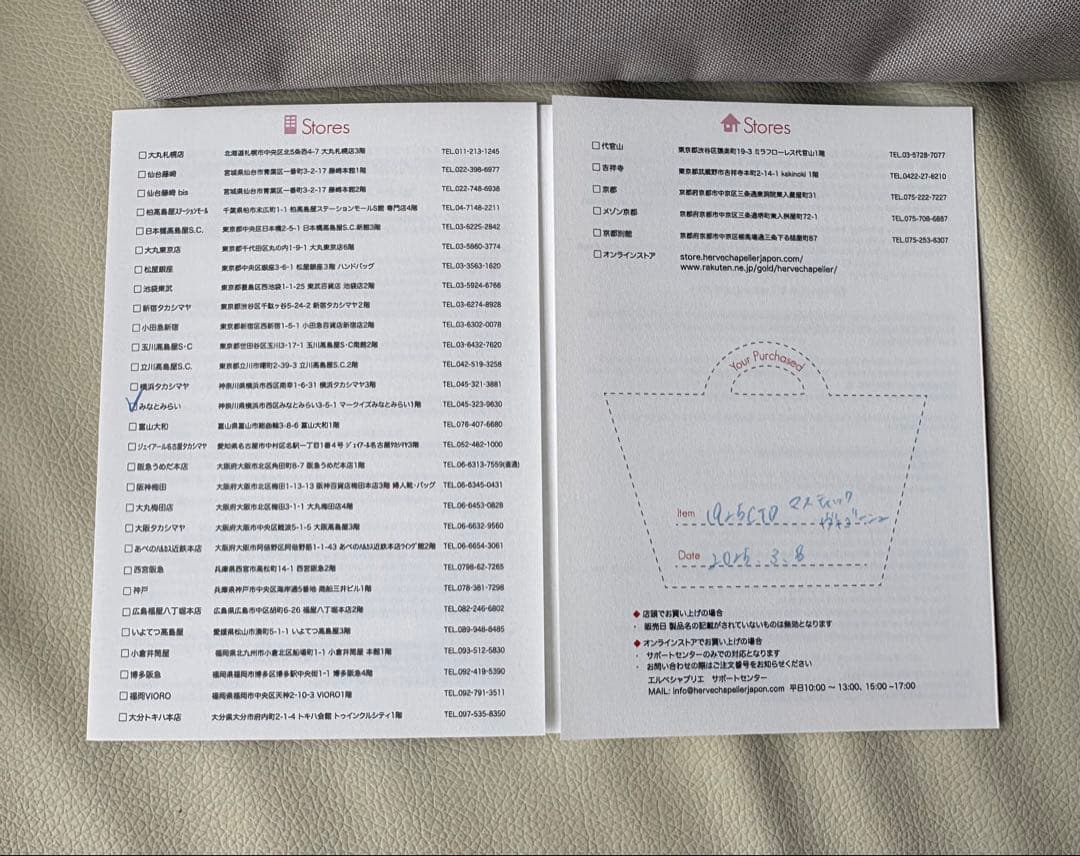 Stores
大丸札幌店 北海道札幌市中央区北5条西4-7 大丸札幌店3階 TEL.011-213-1245
仙台藤崎 宮城県仙台市青葉区一番町3-2-17 藤崎本館1階 TEL.022-398-6977
仙台藤崎 bis 宮城県仙台市青葉区一番町3-2-17 藤崎本館2階 TEL.022-748-6938
柏高島屋ステーションモール 千葉県柏市末広町1-1 柏高島屋ステーションモールS館 専門店4階 TEL.04-7148-2211
日本橋高島屋S.C. 東京都中央区日本橋2-5-1 日本橋高島屋S.C.新館3階 TEL.03-6225-2842
大丸東京店 東京都千代田区丸の内1-9-1 大丸東京店6階 TEL.03-5860-3774
松屋銀座 東京都中央区銀座3-6-1 松屋銀座3階 ハンドバッグ TEL.03-3563-1620
池袋東武 東京都豊島区西池袋1-1-25 東武百貨店 池袋店2階 TEL.03-5924-6766
新宿タカシマヤ 東京都渋谷区千駄ヶ谷5-24-2 新宿タカシマヤ2階 TEL.03-6274-8928
小田急新宿 東京都新宿区西新宿1-5-1 小田急百貨店新宿店2階 TEL.03-6302-0078
玉川高島屋S・C 東京都世田谷区玉川3-17-1 玉川高島屋S・C南館2階 TEL.03-6432-7620
立川高島屋S.C. 東京都立川市曙町2-39-3 立川高島屋S.C.2階 TEL.042-519-3258
横浜タカシマヤ 神奈川県横浜市西区南幸1-6-31 横浜タカシマヤ3階 TEL.045-321-3881
みなとみらい 神奈川県横浜市西区みなとみらい3-5-1 マークイズみなとみらい1階 TEL.045-323-9630
富山大和 富山県富山市総曲輪3-8-6 富山大和1階 TEL.076-407-6680
ジェイアール名古屋タカシマヤ 愛知県名古屋市中村区名駅一丁目1番4号 ジェイアール名古屋タカシマヤ3階 TEL.052-462-1000
阪急うめだ本店 大阪府大阪市北区角田町8-7 阪急うめだ本店1階 TEL.06-6313-7559(直通)
阪神梅田 大阪府大阪市北区梅田1-13-13 阪神百貨店梅田本店3階 婦人靴・バッグ TEL.06-6345-0431
大丸梅田店 大阪府大阪市北区梅田3-1-1 大丸梅田店4階 TEL.06-6453-0828
大阪タカシマヤ 大阪府大阪市中央区難波5-1-5 大阪高島屋3階 TEL.06-6632-9560
あべのハルカス近鉄本店 大阪府大阪市阿倍野区阿倍野筋1-1-43 あべのハルカス近鉄本店ウイング館2階 TEL.06-6654-3061
西宮阪急 兵庫県西宮市高松町14-1 西宮阪急2階 TEL.0798-62-7265
神戸 兵庫県神戸市中央区海岸通5番地 商船三井ビル1階 TEL.078-381-7298
広島福屋八丁堀本店 広島県広島市中区胡町6-26 福屋八丁堀本店2階 TEL.082-246-6802
いよてつ高島屋 愛媛県松山市湊町5-1-1 いよてつ高島屋3階 TEL.089-948-8485
小倉井筒屋 福岡県北九州市小倉北区船場町1-1 小倉井筒屋 本館1階 TEL.093-512-5830
博多阪急 福岡県福岡市博多区博多駅中央街1-1 博多阪急4階 TEL.092-419-5390
福岡VIORO 福岡県福岡市中央区天神2-10-3 VIORO1階 TEL.092-791-3511
大分トキハ本店 大分県大分市府内町2-1-4 トキハ会館 トゥインクルシティ1階 TEL.097-535-8350
Stores
代官山 東京都渋谷区猿楽町19-3 ミラフローレス代官山1階 TEL.03-5728-7077
吉祥寺 東京都武蔵野市吉祥寺本町2-14-1 kakinoki 1階 TEL.0422-27-6210
京都 京都府京都市中京区三条通東洞院東入菱屋町31 TEL.075-222-7227
メゾン京都 京都府京都市中京区三条通堺町東入桝屋町72-1 TEL.075-708-6887
京都別館 京都府京都市中京区柳馬場通三条下る槌屋町87 TEL.075-253-6307
オンラインストア store.hervechapelierjapon.com/
www.rakuten.ne.jp/gold/hervechapelier/
Your Purchased
Item マスティック
Date 2025.3.8
◆ 店頭でお買い上げの場合
・ 販売日 製品名の記載がされていないものは無効となります
◆ オンラインストアでお買い上げの場合
・ サポートセンターのみでの対応となります
・ お問い合わせの際はご注文番号をお知らせください
エルベシャプリエ サポートセンター
MAIL: info@hervechapelierjapon.com 平日10:00 〜 13:00、15:00 〜17:00